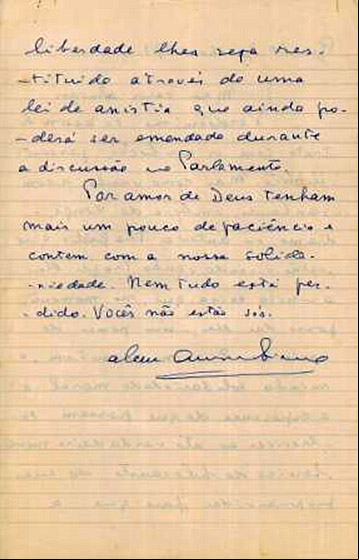 liberdade lhes seja res-
-tituido através de uma
lei de anistia que ainda po-
-derá ser emendada durante
a discussão no Parlamento.
Por amor de Deus tenham
mais um pouco de paciência e
contem com a nossa solida-
-riedade. Nem tudo está per-
-dido. Vocês não estão sós.